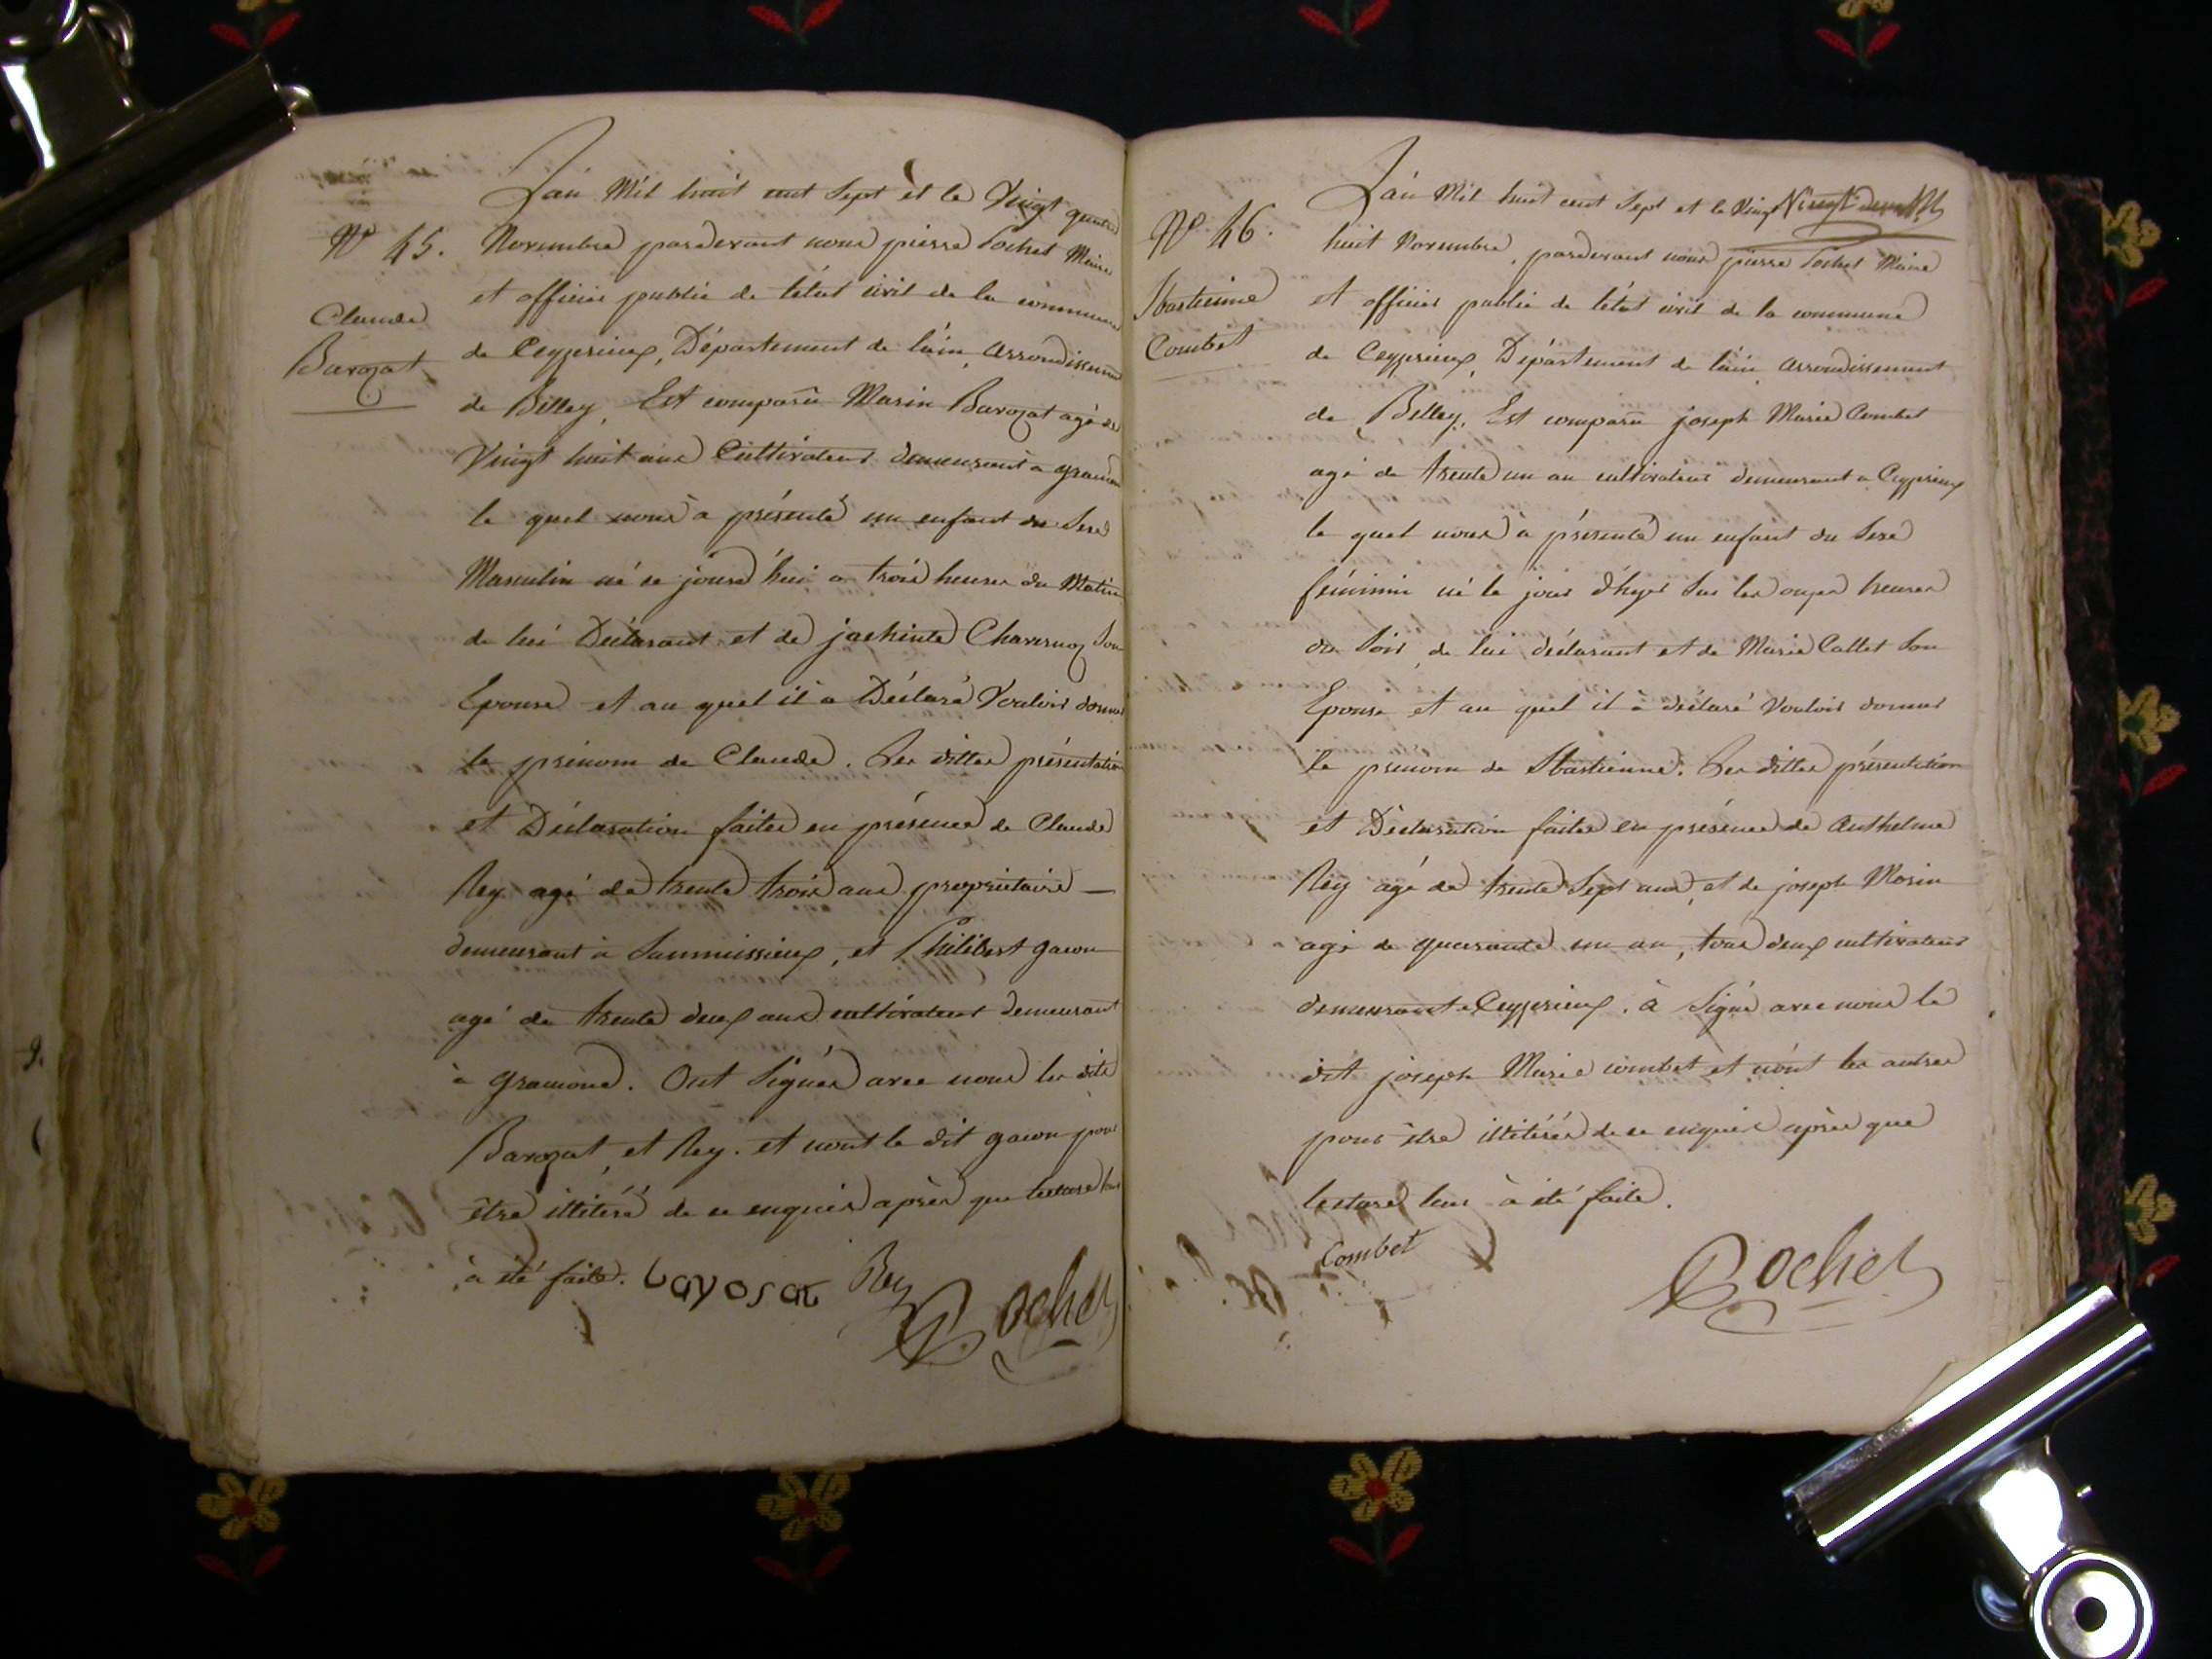 N° 45.
Claude
Barozat
L'an Mil huit cent Sept et le Vingt quatre
Novembre pardevant nous pierre Cochet Maire
et officier public de l'état civil de la commune
de Ceyzerieux, Département de l'ain, arrondissement
de Belley, Est comparû Marin Barozat agé de
Vingt huit ans Cultivateur demeurant a
le quel nous a présenté un enfant du Sexe
Masculin né ce jourd'hui a trois heures du Matin
de lui Déclarant et de jachinte Charveroz Son
Epouse et au quel il a Déclaré Vouloir donner
le prénom de Claude. Les dittes présentation
et Déclaration faites en présence de Claude
Rey agé de trente trois ans propriétaire
demeurant à et Philibert gacon
agé de trente deux ans cultivateur demeurant
à gramond. Ont Signés avec nous les dits
Barozat, et Rey. et n'ont le dit gacon pour
être illitéré de ce enquis après que lecture leur
à été faite. bayosat Rey Cochet
N° 46.
Sbastienne
Combet
L'an Mil huit cent Sept et le Vingt
huit Novembre, pardevant nous pierre Cochet Maire
et officier public de l'état civil de la commune
de Ceyzerieux, Département de l'ain arrondissement
de Belley, Est comparu joseph Marie Combet
agé de trente un an cultivateur demeurant a Ceyzerieux
le quel nous à présenté un enfant du Sexe
féminin né le jour d'hyer Sur les onzes heures
du Soir, de lui déclarant et de Marie Callet Son
Epouse et au quel il à déclaré Vouloir donner
le prenom de Sbastienne. Les dittes présentation
et Déclaration faites en présence de Anthelme
Rey agé de trente Sept ans, et de joseph Morin
agé de quarante un an, tous deux cultivateur
demeurant a Ceyzerieux. à Signé avec nous le
dit joseph Marie combet et n'ont les autres
pour être illitérés de ce enquis après que
lecture leur à été faite.
Combet Cochet